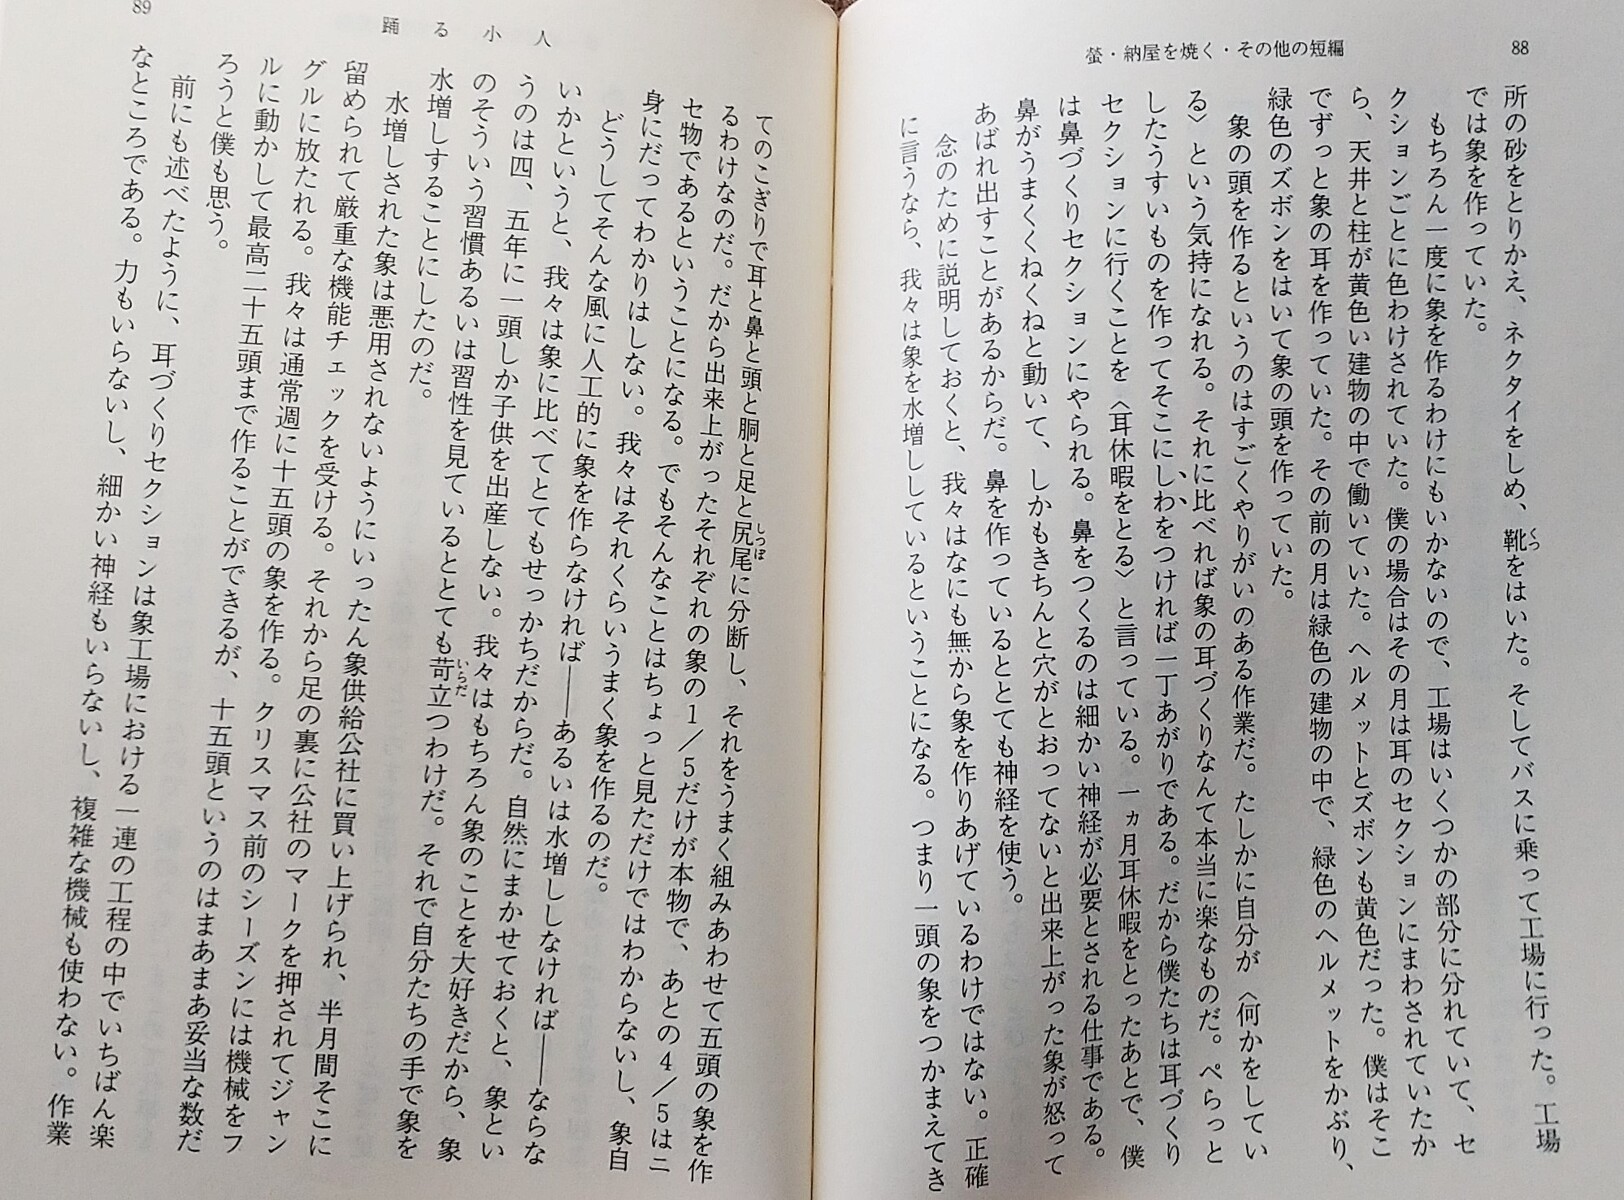 88
螢・納屋を焼く・その他の短編
所の砂をとりかえ、ネクタイをしめ、靴をはいた。そしてバスに乗って工場に行った。工場
では象を作っていた。
もちろん一度に象を作るわけにもいかないので、工場はいくつかの部分に分れていて、セ
クションごとに色わけされていた。僕の場合はその月は耳のセクションにまわされていたか
ら、天井と柱が黄色い建物の中で働いていた。ヘルメットとズボンも黄色だった。僕はそこ
でずっと象の耳を作っていた。その前の月は緑色の建物の中で、緑色のヘルメットをかぶり、
緑色のズボンをはいて象の頭を作っていた。
象の頭を作るというのはすごくやりがいのある作業だ。たしかに自分が〈何かをしてい
る〉という気持になれる。それに比べれば象の耳づくりなんて本当に楽なものだ。ぺらっと
したうすいものを作ってそこにしわをつければ一丁あがりである。だから僕たちは耳づくり
セクションに行くことを〈耳休暇をとる〉と言っている。一ヵ月耳休暇をとったあとで、僕
は鼻づくりセクションにやられる。鼻をつくるのは細かい神経が必要とされる仕事である。
鼻がうまくくねくねと動いて、しかもきちんと穴がとおってないと出来上がった象が怒って
あばれ出すことがあるからだ。鼻を作っているととても神経を使う。
念のために説明しておくと、我々はなにも無から象を作りあげているわけではない。正確
に言うなら、我々は象を水増ししているということになる。つまり一頭の象をつかまえてき
89
踊る小人
てのこぎりで耳と鼻と頭と胴と足と尻尾に分断し、それをうまく組みあわせて五頭の象を作
るわけなのだ。だから出来上がったそれぞれの象の1/5だけが本物で、あとの4/5はニ
セ物であるということになる。でもそんなことはちょっと見ただけではわからないし、象自
身にだってわかりはしない。我々はそれくらいうまく象を作るのだ。
どうしてそんな風に人工的に象を作らなければ――あるいは水増ししなければ――ならな
いかというと、我々は象に比べてとてもせっかちだからだ。自然にまかせておくと、象とい
うのは四、五年に一頭しか子供を出産しない。我々はもちろん象のことを大好きだから、象
のそういう習慣あるいは習性を見ているととても苛立つわけだ。それで自分たちの手で象を
水増しすることにしたのだ。
水増しされた象は悪用されないようにいったん象供給公社に買い上げられ、半月間そこに
留められて厳重な機能チェックを受ける。それから足の裏に公社のマークを押されてジャン
グルに放たれる。我々は通常週に十五頭の象を作る。クリスマス前のシーズンには機械をフ
ルに動かして最高二十五頭まで作ることができるが、十五頭というのはまあまあ妥当な数だ
ろうと僕も思う。
前にも述べたように、耳づくりセクションは象工場における一連の工程の中でいちばん楽
なところである。力もいらないし、細かい神経もいらないし、複雑な機械も使わない。作業